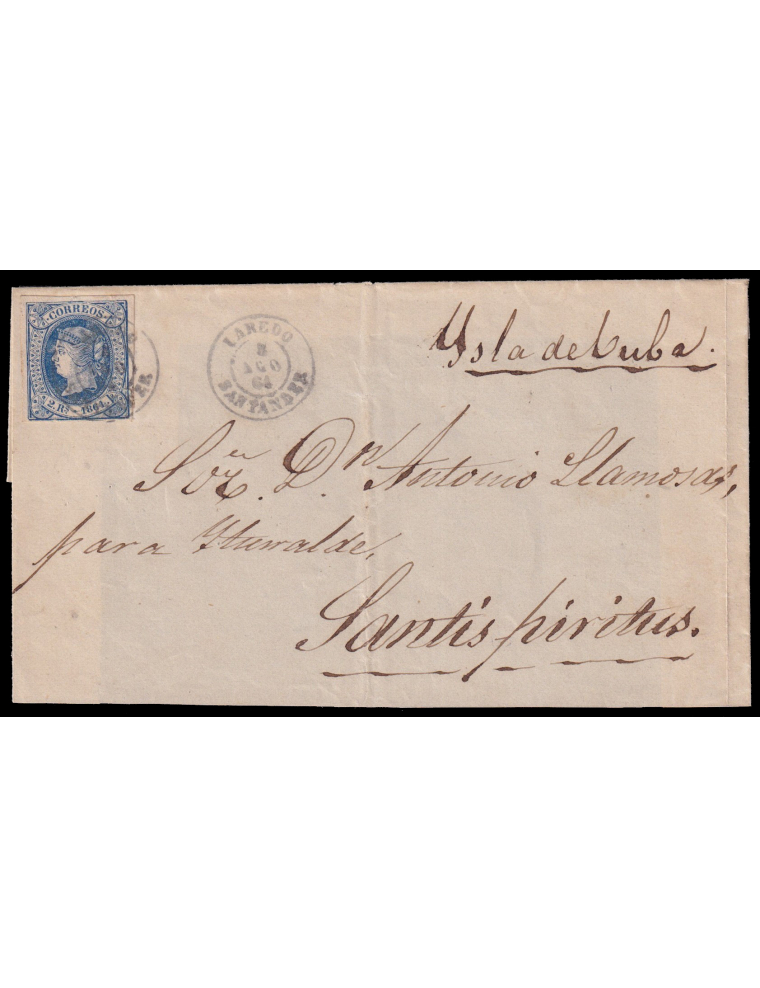 CORREOS
2 Rs. 1864
LAREDO
AGO
64
SANTANDER
Ysla de Cuba.
Sor. Dn Antonio Llamosas,
para Yturralde,
Santispiritus.